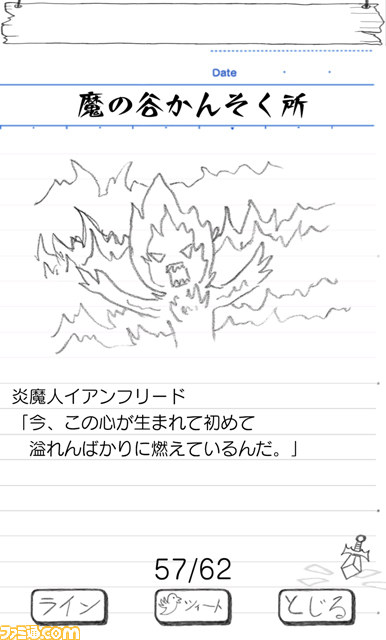 Date
魔の谷かんそく所
炎魔人イアンフリード
「今、この心が生まれて初めて
溢れんばかりに燃えているんだ。」
57/62
ライン
ツイート
とじる
ファミ通.com